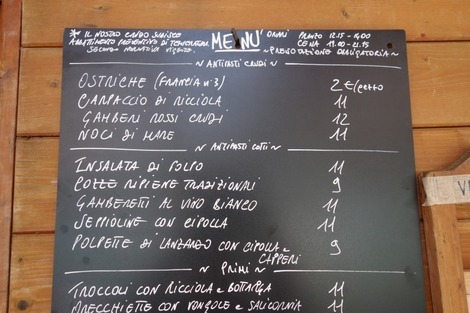 * IL NOSTRO CRUDO SUBISCE
ABBATTIMENTO PREVENTIVO DI TEMPERATURA
SECONDO NORMATIVA VIGENTE
MENU'
ORARI PRANZO 12.15 - 14.00
CENA 19.00 - 21.15
~ PRENOTAZIONE OBBLIGATORIA ~
~ ANTIPASTI CRUDI ~
OSTRICHE (FRANCIA n°3) 2 €/PEZZO
CARPACCIO DI RICCIOLA 11
GAMBERI ROSSI CRUDI 12
NOCI DI MARE 11
~ ANTIPASTI COTTI ~
INSALATA DI POLPO 11
COZZE RIPIENE TRADIZIONALI 9
GAMBERETTI AL VINO BIANCO 11
SEPPIOLINE CON CIPOLLA 11
POLPETTE DI LANZARDO CON CIPOLLA e CAPPERI 9
~ PRIMI ~
TROCCOLI CON RICCIOLA e BOTTARGA 11
ORECCHIETTE CON VONGOLE e SALICORNIA 11